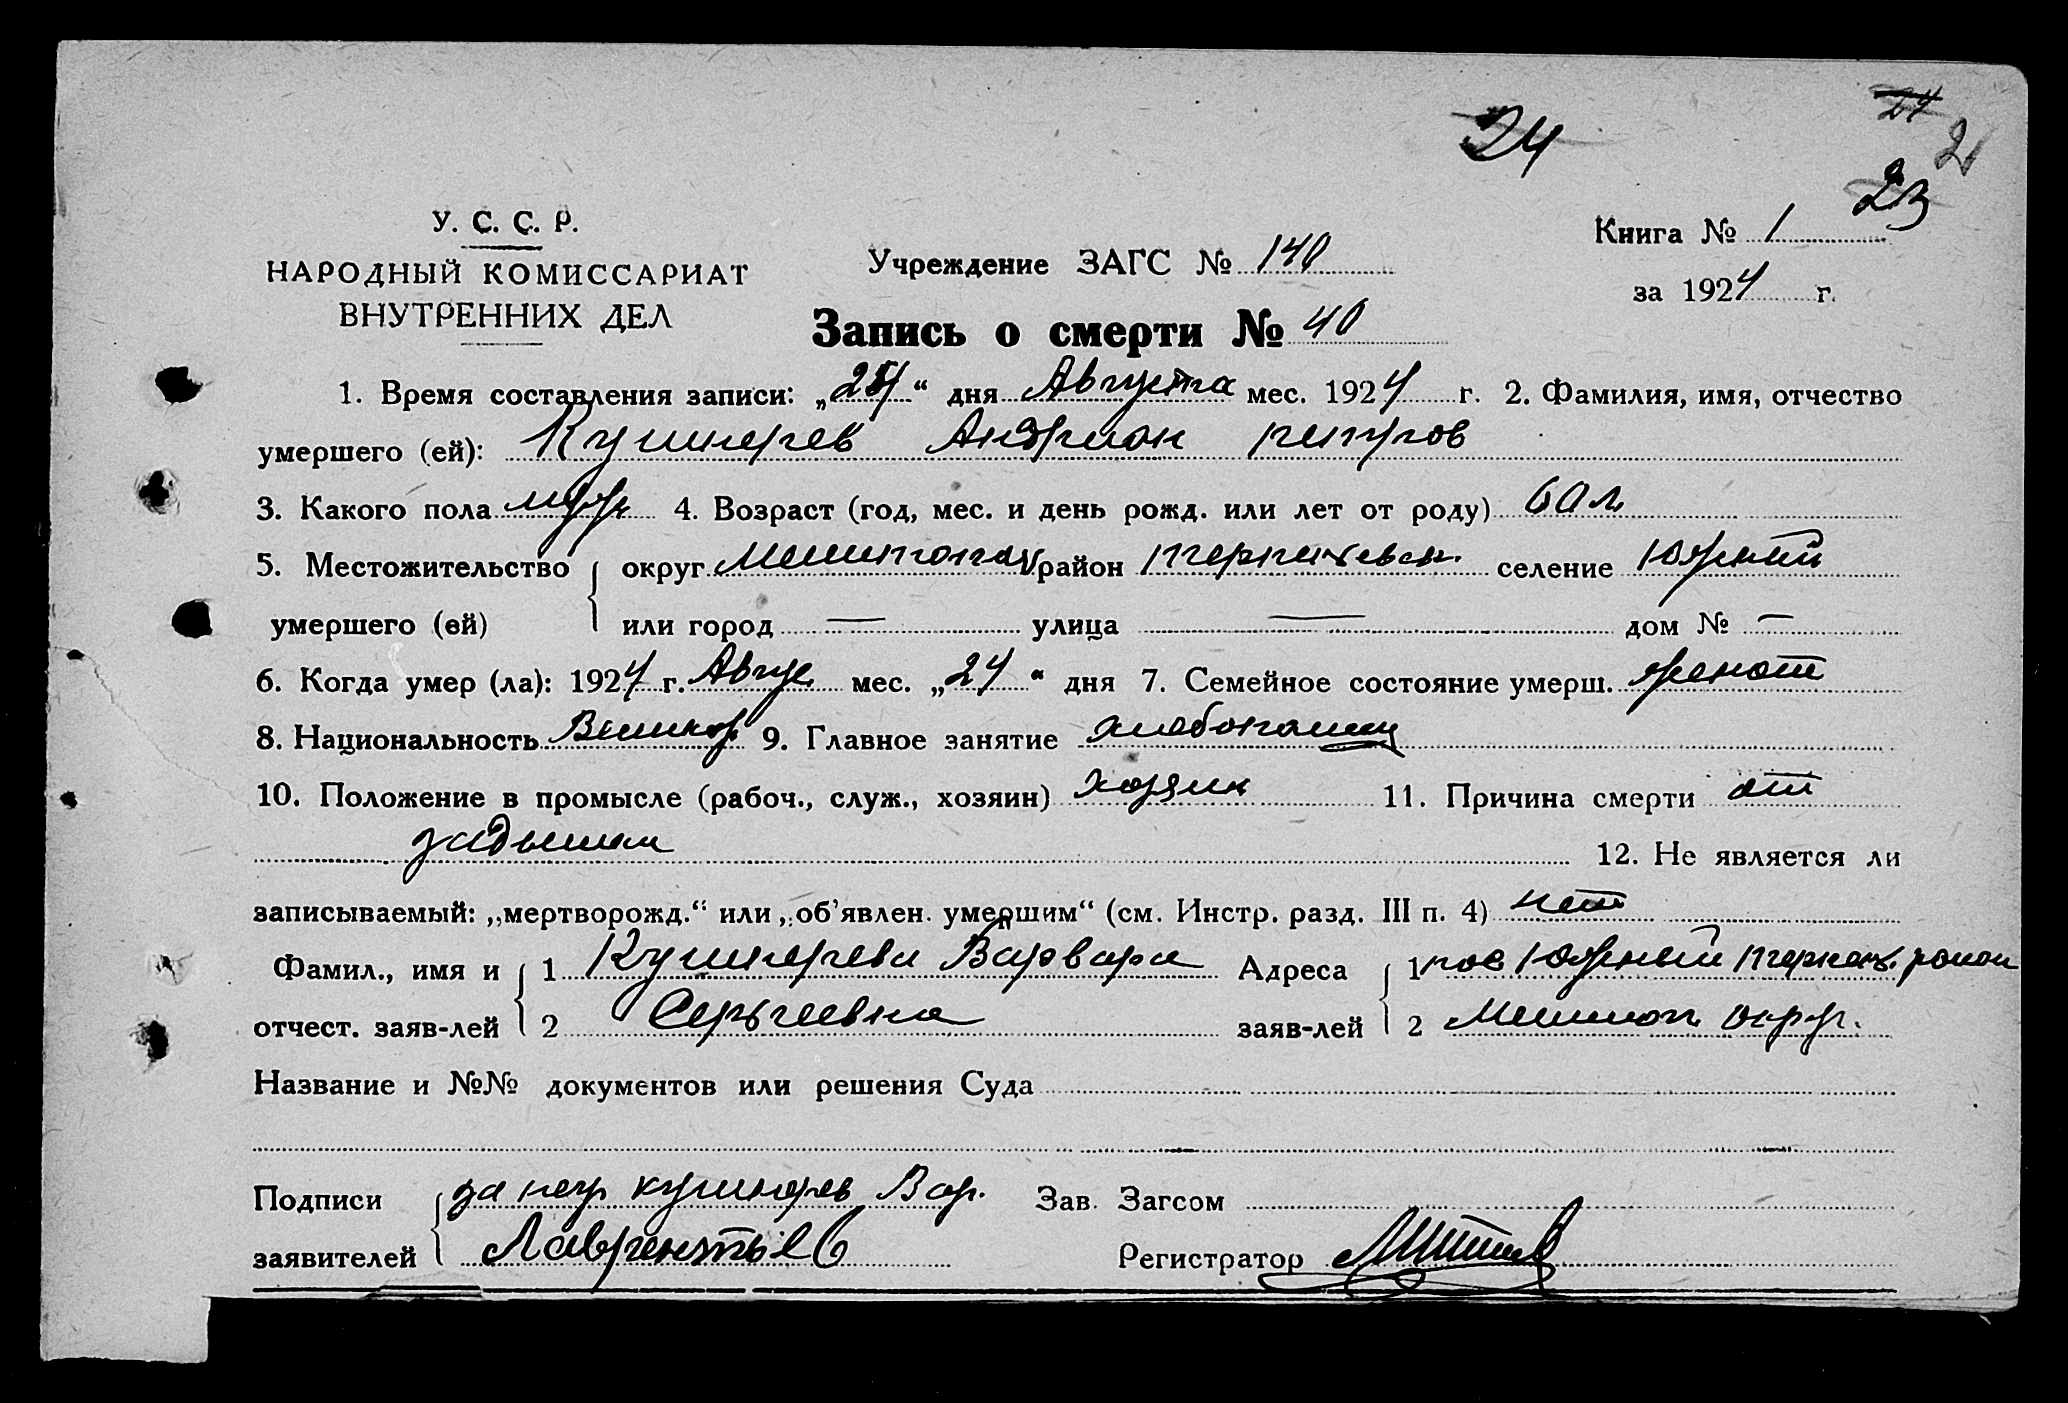 24
24
2
23
У. С. С. Р.
НАРОДНЫЙ КОМИССАРИАТ
ВНУТРЕННИХ ДЕЛ
Учреждение ЗАГС № 140
Книга № 1
за 1924 г.
Запись о смерти № 40
1. Время составления записи: „25“ дня Августа мес. 1924 г. 2. Фамилия, имя, отчество
умершего (ей): Кушнерев Андриан
3. Какого пола муж 4. Возраст (год, мес. и день рожд. или лет от роду) 60 л.
5. Местожительство округ район селение Южный
умершего (ей) или город — улица — дом № —
6. Когда умер (ла): 1924 г. Авгус. мес. „24“ дня 7. Семейное состояние умерш. женат
8. Национальность Великор. 9. Главное занятие хлебопашец
10. Положение в промысле (рабоч., служ., хозяин) хозяин 11. Причина смерти от
12. Не является ли
записываемый: „мертворожд.“ или „об’явлен. умершим“ (см. Инстр. разд. III п. 4) нет
Фамил., имя и 1 Кушнерева Варвара Адреса 1 пос Южный район
отчест. заяв-лей 2 Сергеевна заяв-лей 2 Мелитоп. окр.
Название и №№ документов или решения Суда
Подписи за негр кушнерев Вар. Зав. Загсом
заявителей Лаврентьев Регистратор